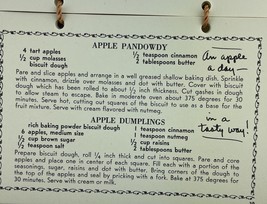 APPLE PANDOWDY
4 tart apples
½ cup molasses
biscuit dough
½ teaspoon cinnamon
2 tablespoons butter
An apple
a day—
Pare and slice apples and arrange in a well greased shallow baking dish. Sprinkle
with cinnamon, drizzle over molasses and dot with butter. Cover with biscuit
dough which has been rolled to about ½ inch thickness. Cut gashes in dough
to allow steam to escape. Bake in moderate oven about 375 degrees for 30
minutes. Serve hot, cutting out squares of the biscuit to use as a base for the
fruit mixture. Serve with cream flavored with nutmeg.
in a
tasty way!
APPLE DUMPLINGS
rich baking powder biscuit dough
6 apples, medium size
½ cup brown sugar
½ teaspoon salt
1 teaspoon cinnamon
1 teaspoon nutmeg
½ cup raisins
2 tablespoons butter
Prepare biscuit dough, roll ¼ inch thick and cut into squares. Pare and core
apples and place one in center of each square. Fill each with a portion of the
seasonings, sugar, raisins and dot with butter. Bring corners of the dough to
the top of the apples and seal by pricking with a fork. Bake at 375 degrees for
30 minutes. Serve with cream or milk.